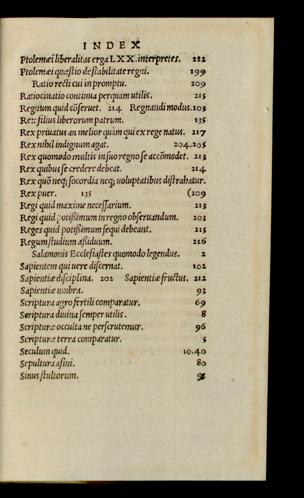 INDEX
Ptolemæi liberalitas erga LXX. interpretes. 212
Ptolemæi quæstio de stabilitate regni. 199
Ratio recti cui in promptu. 209
Ratiocinatio continua perquam utilis. 215
Regnum quid cõseruet. 214 Regnandi modus. 203
Rex filius liberorum patrum. 135
Rex priuatus an melior quàm qui ex rege natus. 217
Rex nihil indignum agat. 204.205
Rex quomodo multis in suo regno se accõmodet. 213
Rex quibus se credere debeat. 214
Rex quõ neq; socordia neq; uoluptatibus distrahatur.
Rex puer. 135 (209
Regi quid maxime necessarium. 213
Regi quid potißimum in regno obseruandum. 203
Reges quid potißimum sequi debeant. 215
Regum studium aßiduum. 216
Salamonis Ecclesiastes quomodo legendus. 2
Sapientem qui uere discernat. 102
Sapientiæ disciplina. 202 Sapientiæ fructus. 212
Sapientiæ umbra. 93
Scriptura agro fertili comparatur. 69
Scriptura diuina semper utilis. 8
Scripturæ occulta ne perscrutemur. 96
Scripturæ terra comparatur. 5
Seculum quid. 10.40
Sepultura asini. 80
Sinus stultorum.